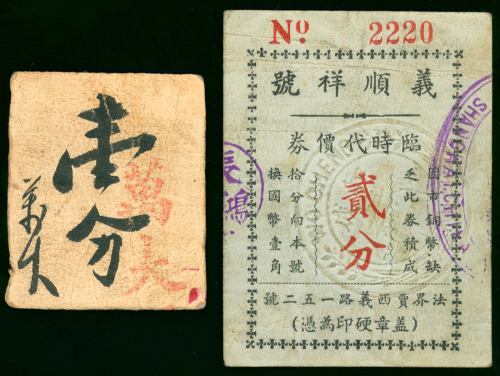 壹分
萬大
萬大
Nº 2220
義順祥號
臨時代價券
因市銅幣缺
乏此券積成
貳分
拾分向本號
換國幣壹角
法界賈西義路一五二號
(蓋章硬印為憑)
SHANGHAI
鴻